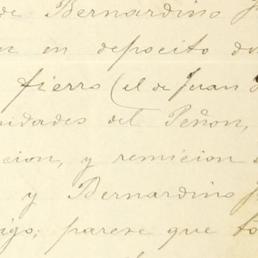 de Bernardino
en en deposito
fierro (el de Juan
nidades del Peñon,
cion, y remicion
y Bernardino
igo; parece que to